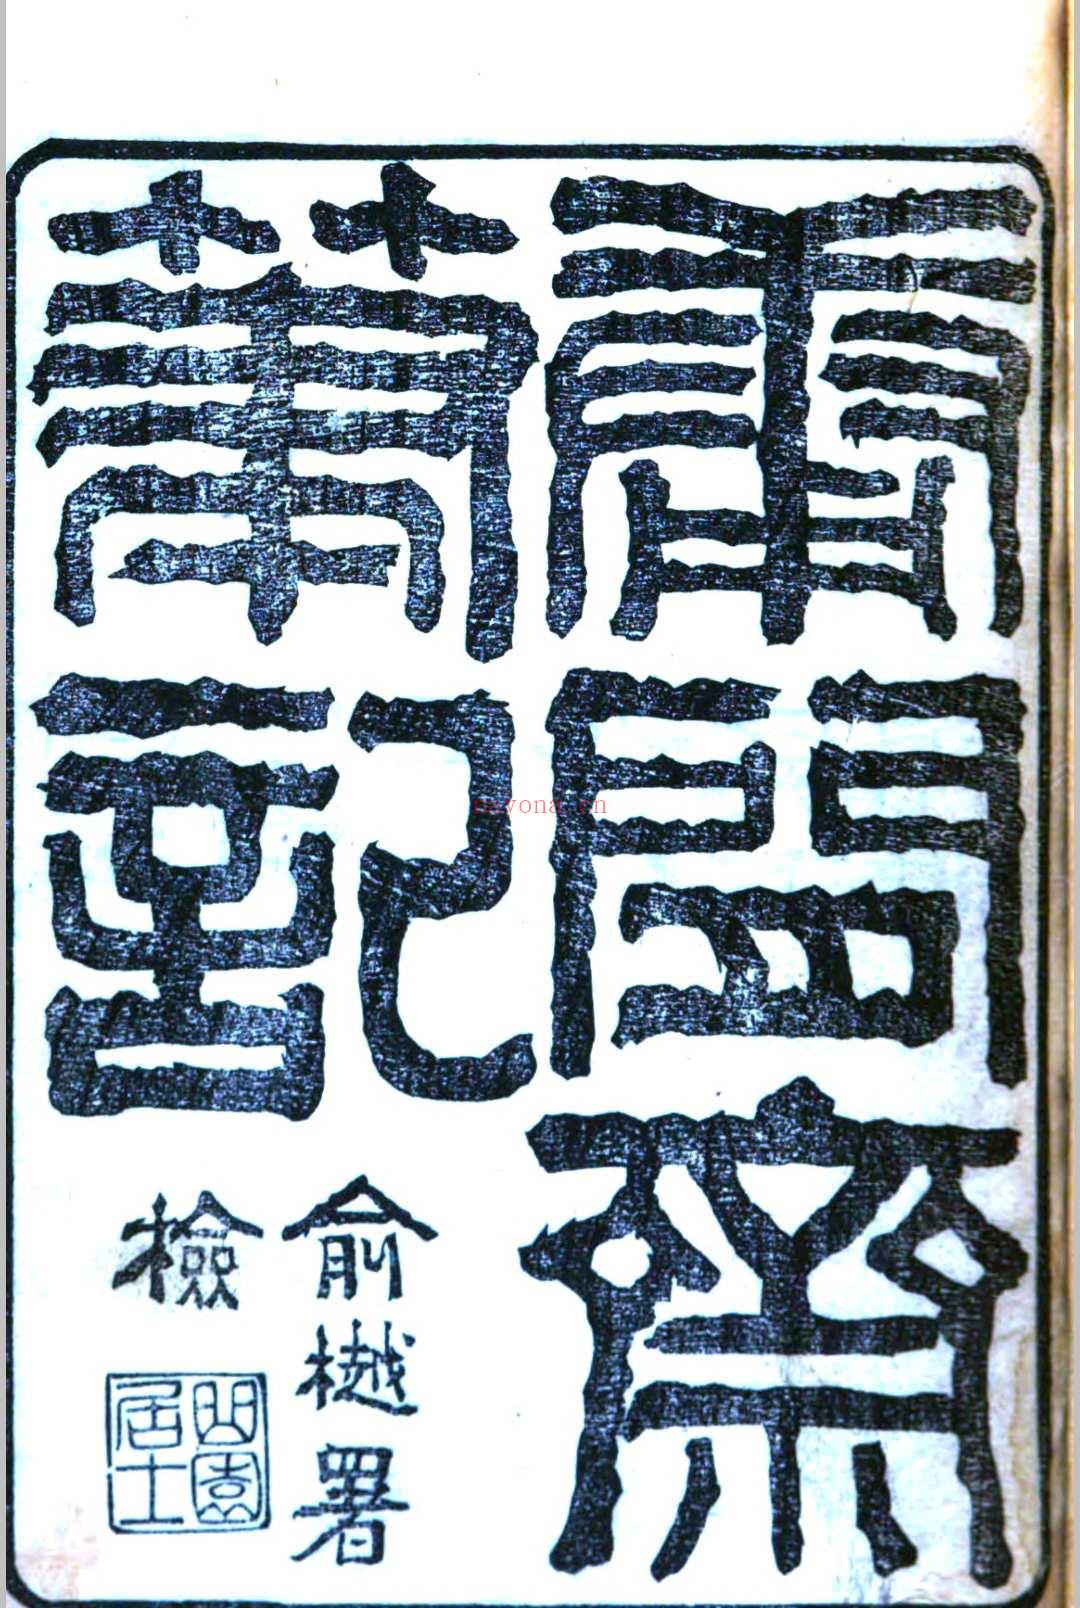 庸閒齋
筆記
俞樾署
檢
曲園
居士